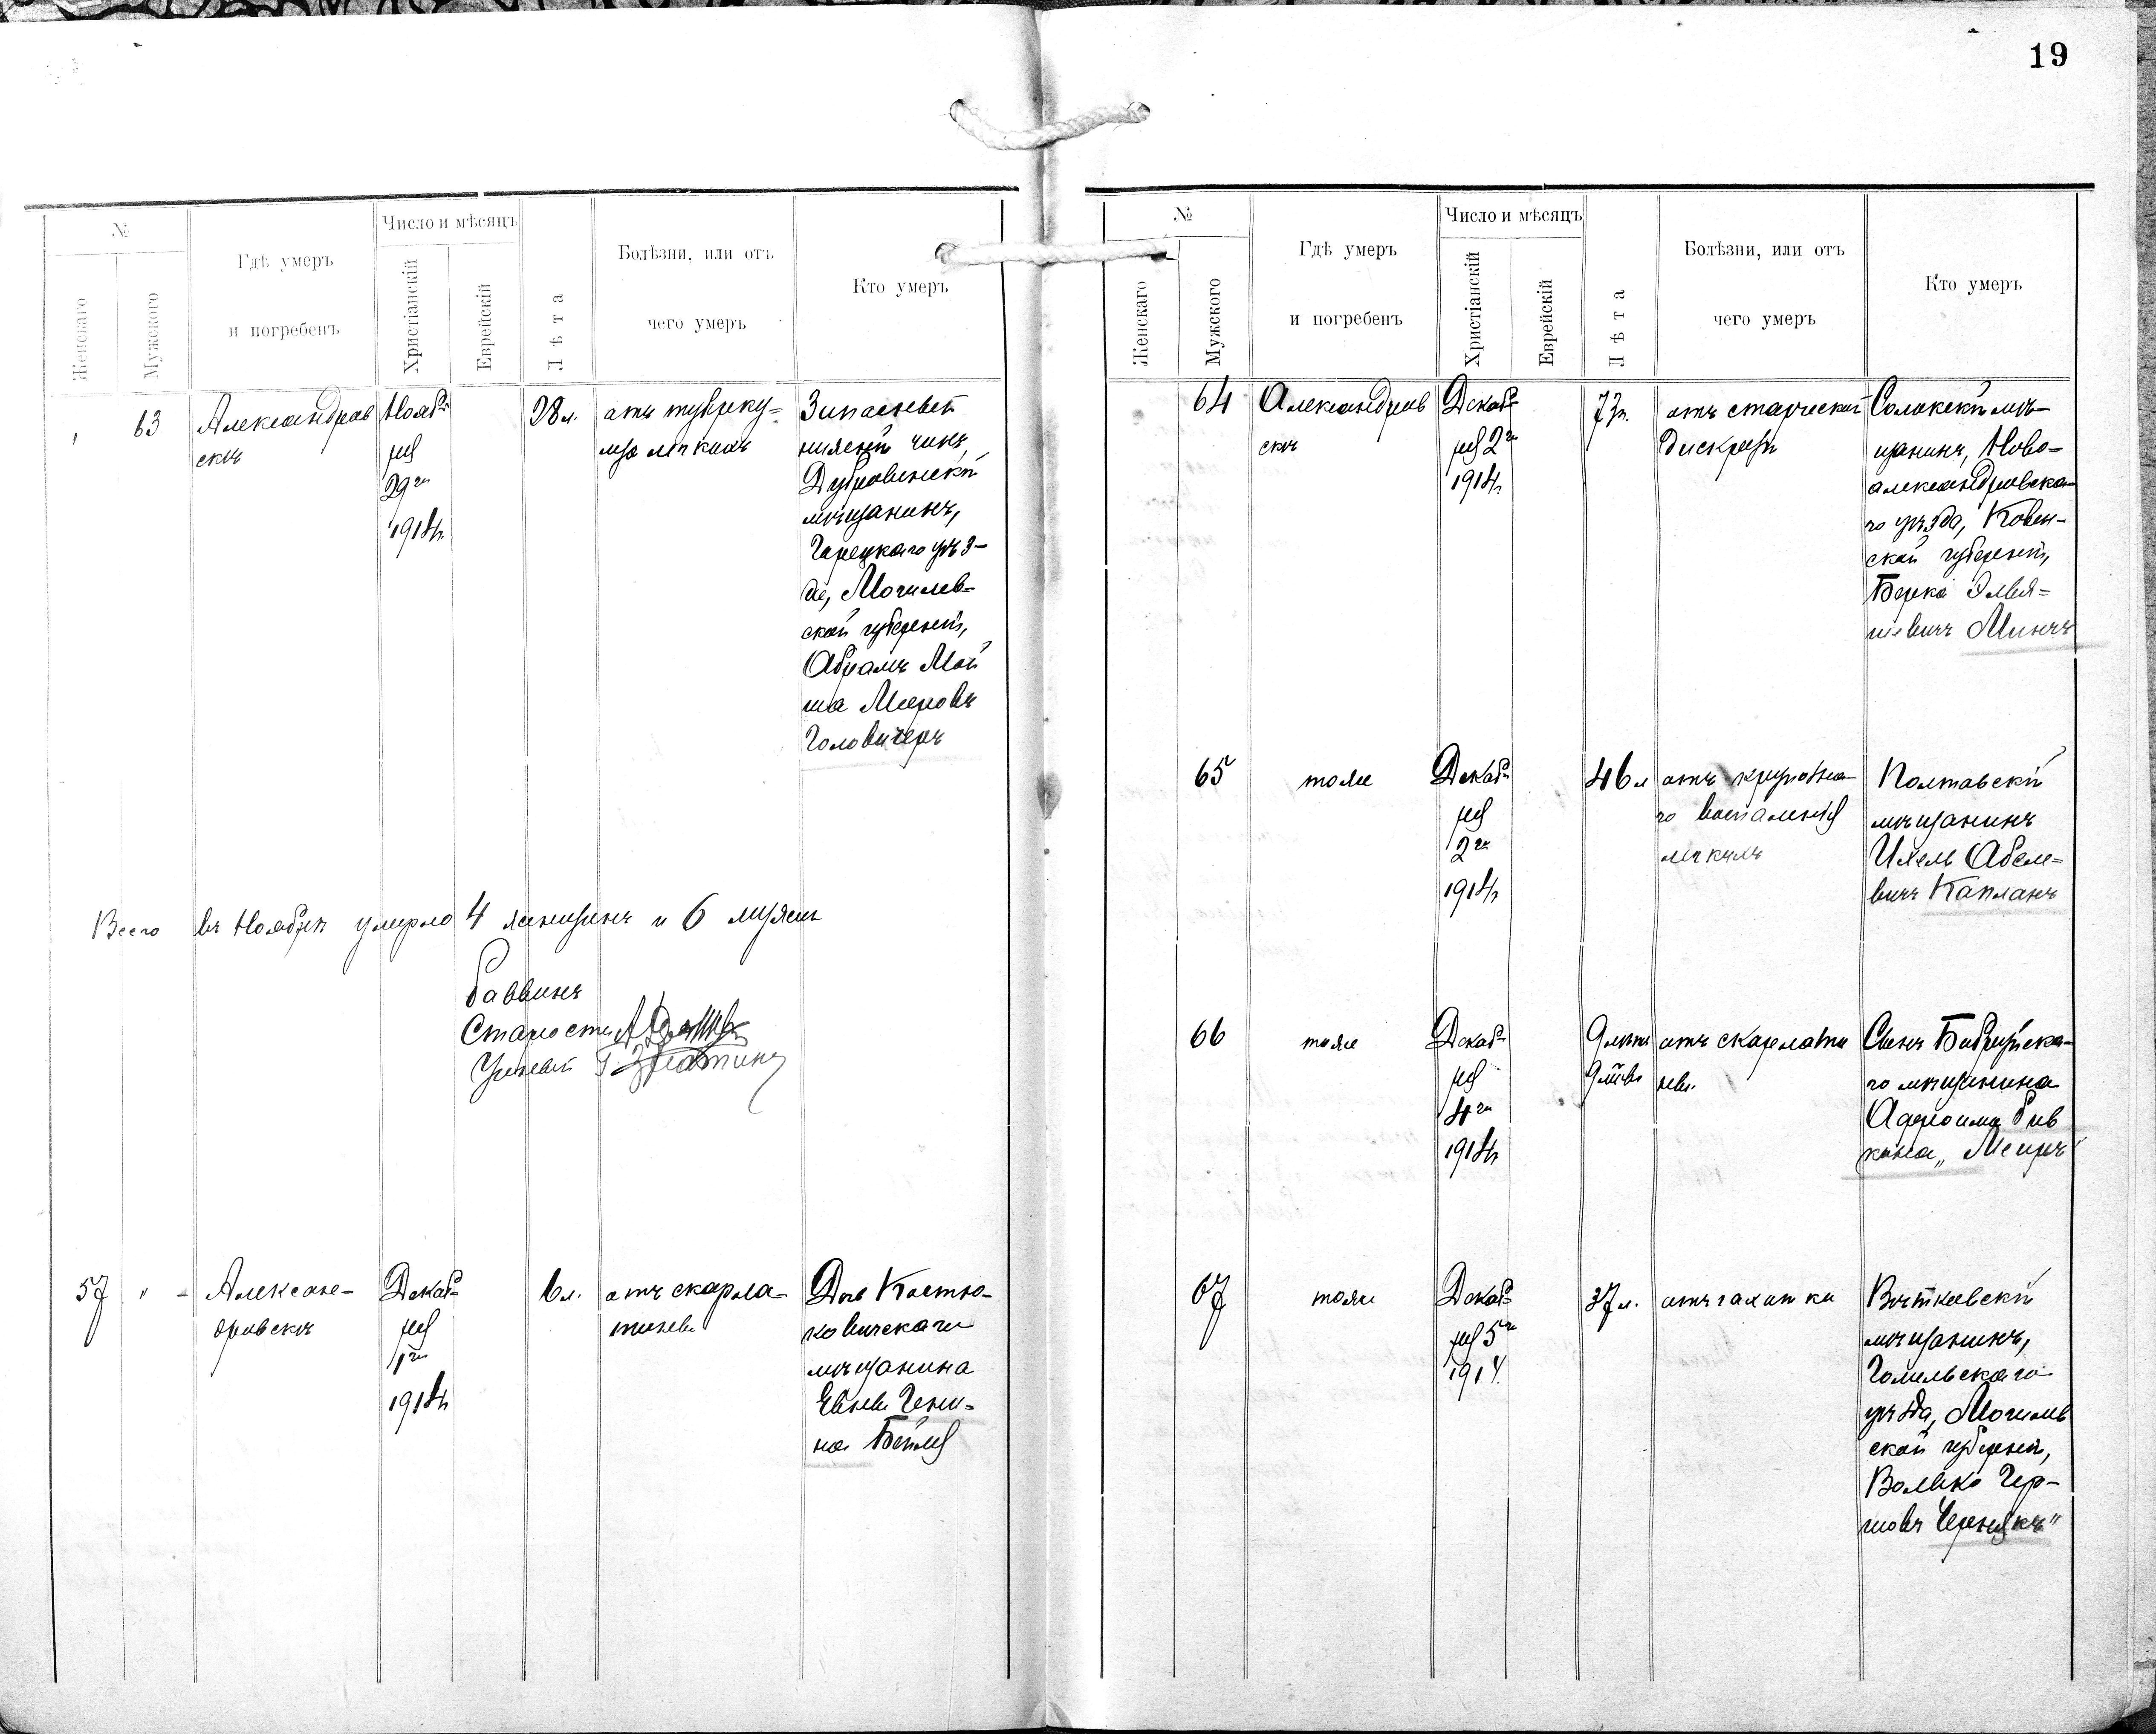 19
№
Женскаго
Мужского
Гдѣ умеръ
и погребенъ
Число и мѣсяцъ
Христіанскій
Еврейскій
Лѣта
Болѣзни, или отъ
чего умеръ
Кто умеръ
63
Александров
скъ
Нояб-
ря
29го
1914г.
28л.
отъ туберку-
леза легкихъ
Запасный
нижній чинъ,
Дубровинскій
мѣщанинъ,
Горецкаго уѣз-
да, Могилев-
ской губерніи,
Абрамъ Мов
ша Мееровъ
Головчеръ
Всего въ Ноябрѣ умерло 4 женщинъ и 6 мужчинъ
Раввинъ
Староста
Ученый
57 " -
Алексан-
дровскъ
Декаб-
ря
1го
1914г.
6л.
отъ скарла-
тины
Дочь Костю-
ковичскаго
мѣщанина
Евны Гени-
на Бейля
№
Женскаго
Мужского
Гдѣ умеръ
и погребенъ
Число и мѣсяцъ
Христіанскій
Еврейскій
Лѣта
Болѣзни, или отъ
чего умеръ
Кто умеръ
64
Александров
скъ
Декаб-
ря 2го
1914г.
73л.
отъ старческой
дискразіи
Солокскій мѣ-
щанинъ, Ново-
александровска-
го уѣзда, Ковен-
ской губерніи,
Берка Элья-
шевичъ Минчъ
65
тоже
Декаб-
ря
2го
1914г.
46л
отъ крупозна-
го воспаленія
легкихъ
Полтавскій
мѣщанинъ
Ихель Абеле-
вичъ Капланъ
66
тоже
Декаб-
ря
4го
1914г.
9 лѣтъ
9 м-въ
отъ скарлати
ны.
Сынъ Бобруйска-
го мѣщанина
Рив
кина „Меиръ"
67
тоже
Декаб-
ря 5го
1914
37л.
отъ чахотки
Вѣтковскій
мѣщанинъ,
Гомельскаго
уѣзда, Могилев
ской губерніи,
Волько Гер-
шовъ Чернякъ"